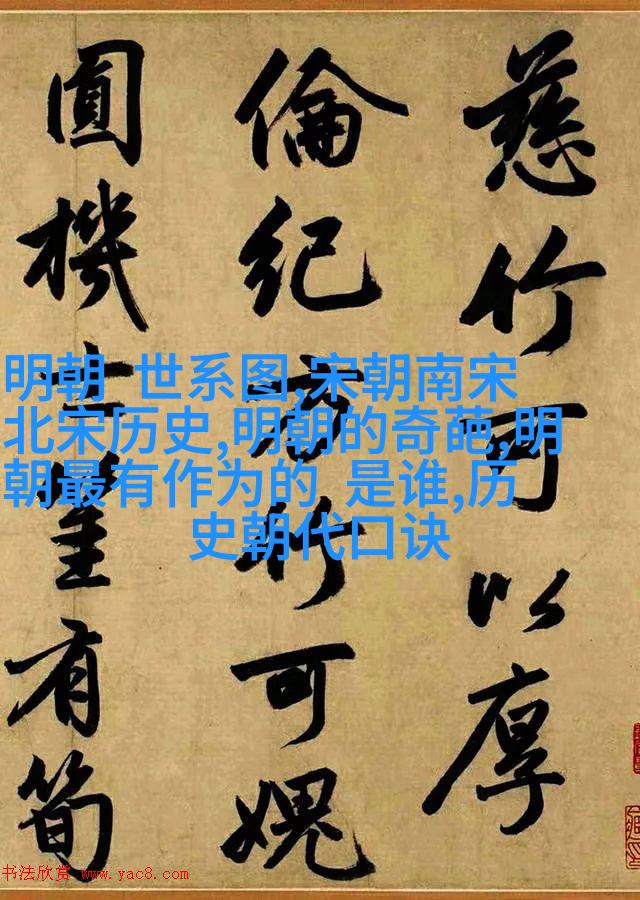 慈竹可以厚
倫紀方竹可媿
圓機士有筍
明朝 世系图,宋朝南宋
北宋历史,明朝的奇葩,明
朝最有作为的 是谁,历
史朝代口诀
书法欣赏 www.yac8.com